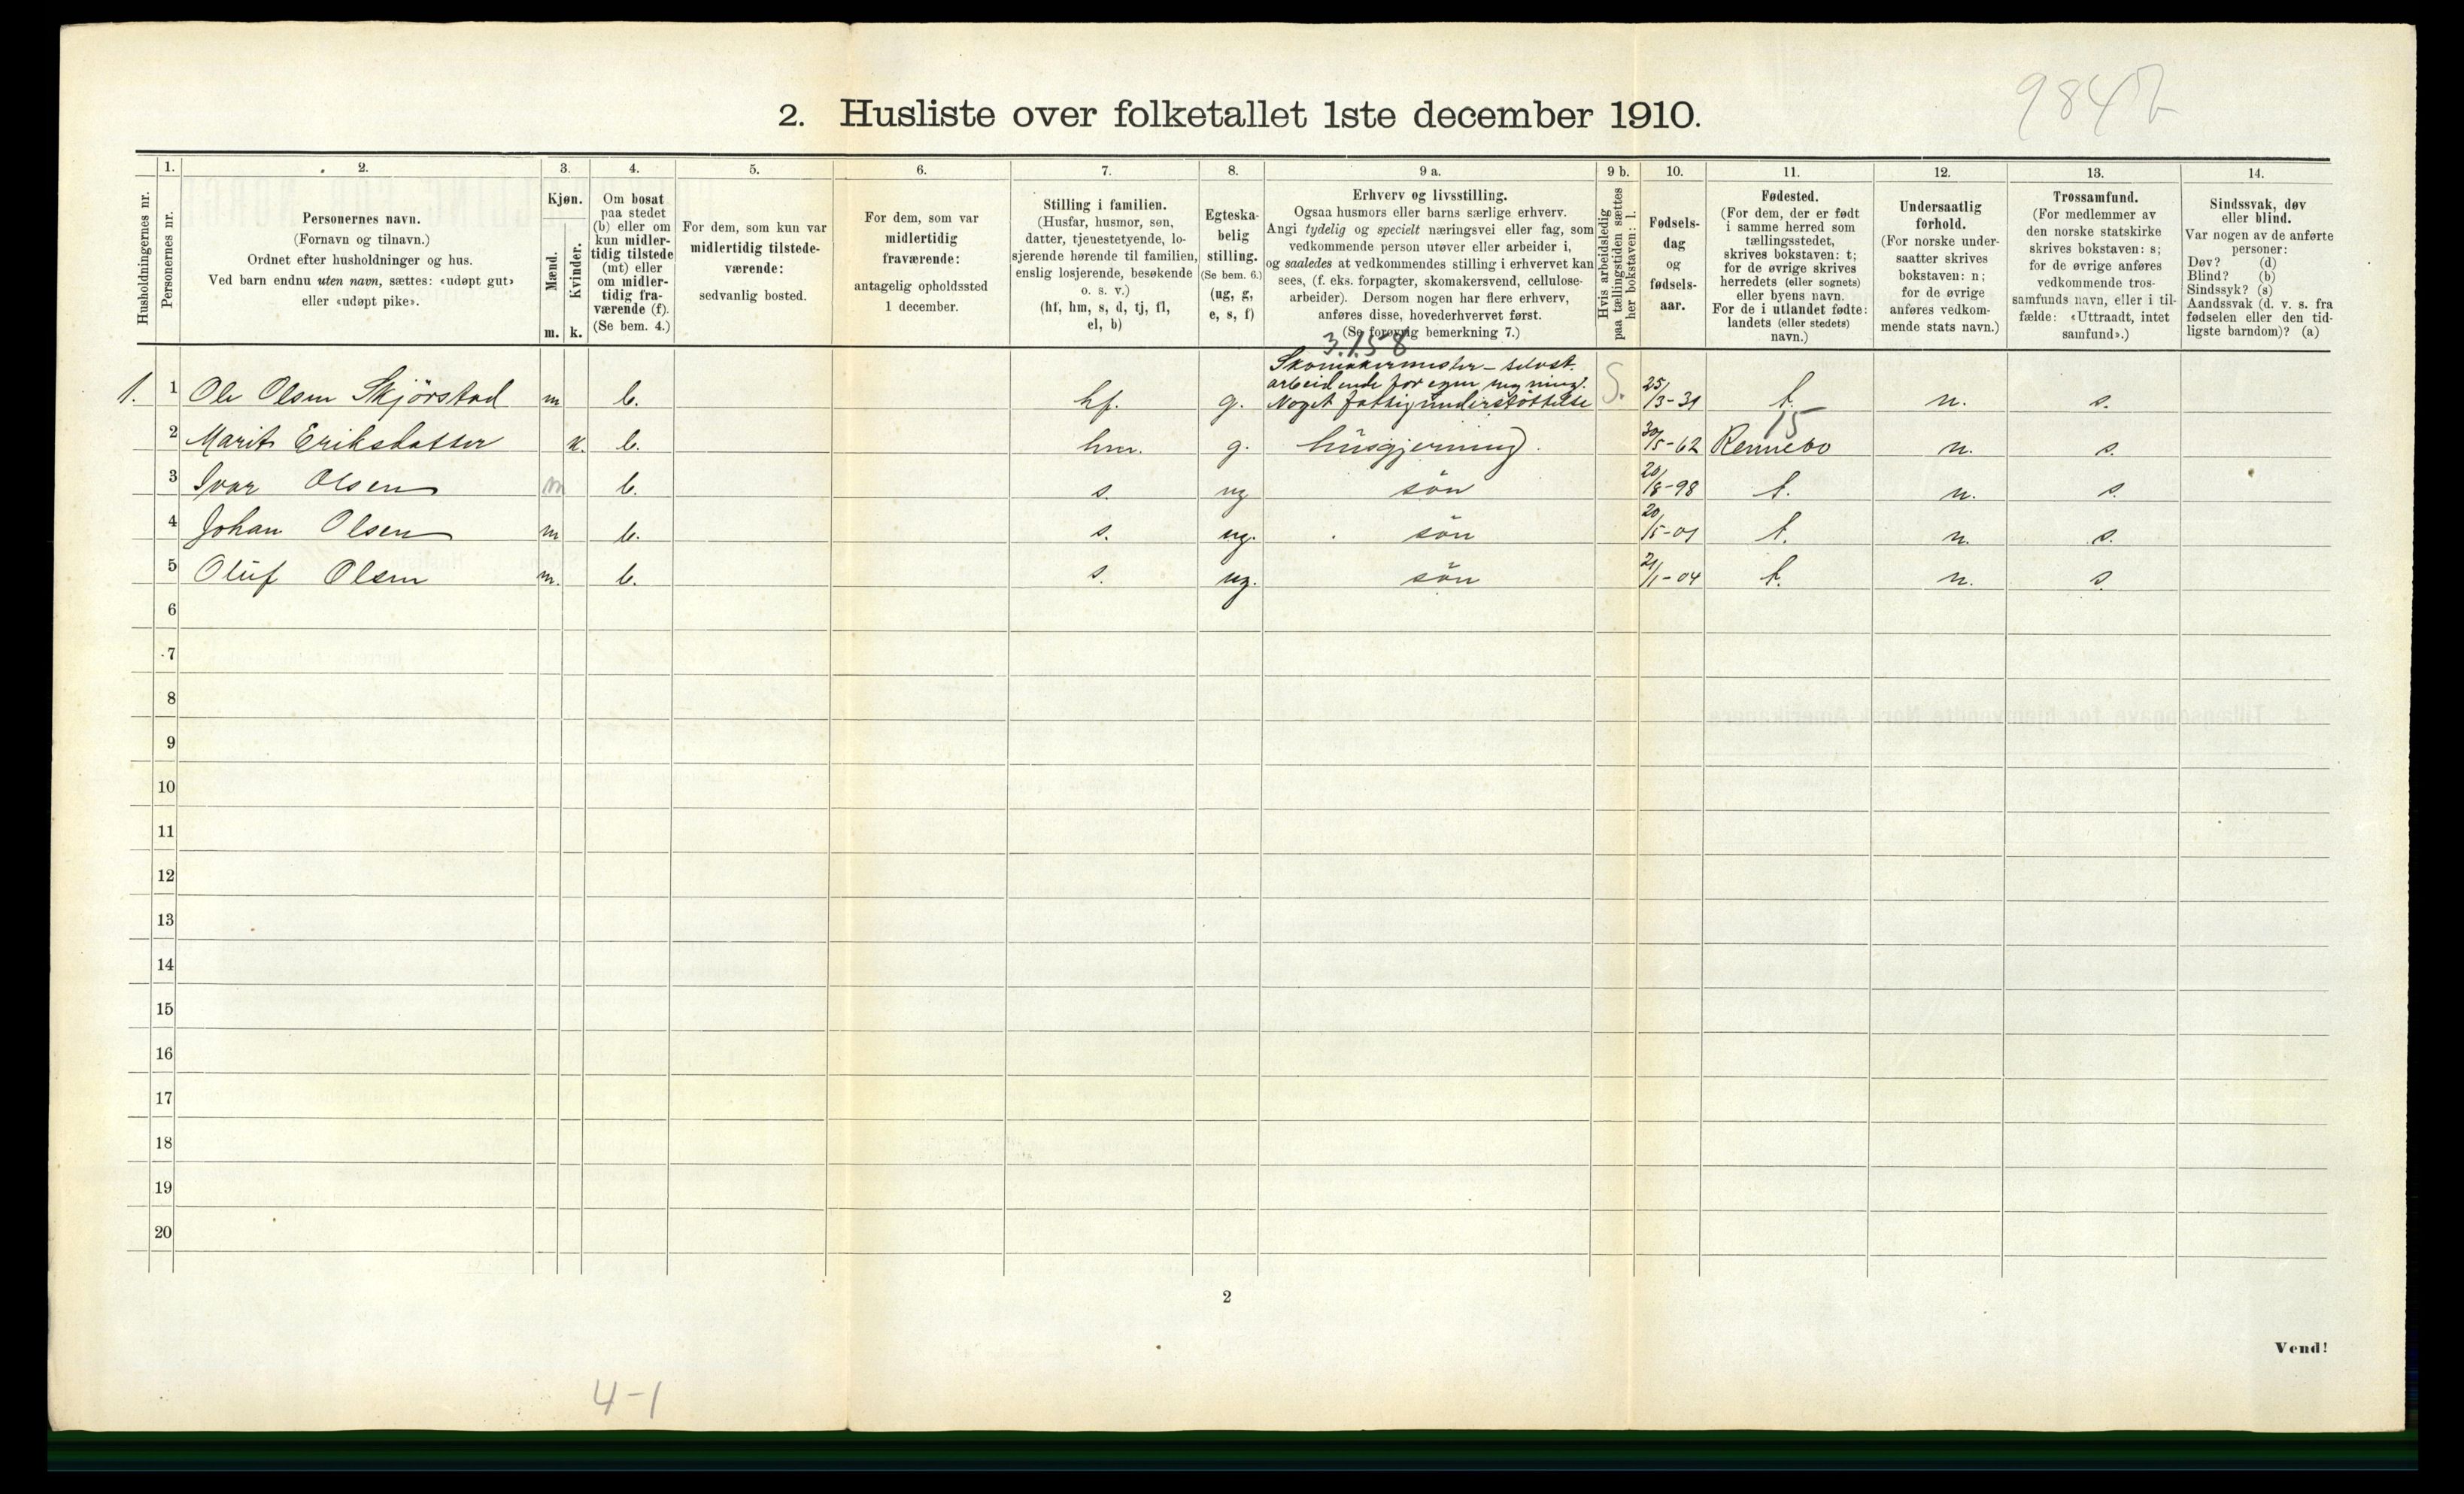 984b
2. Husliste over folketallet 1ste december 1910.
Husholdningernes nr.
1. Personernes nr.
2. Personernes navn. (Fornavn og tilnavn.) Ordnet efter husholdninger og hus. Ved barn endnu uten navn, sættes: «udøpt gut» eller «udøpt pike».
3. Kjøn. Mænd. m. Kvinder. k.
4. Om bosat paa stedet (b) eller om kun midlertidig tilstede (mt) eller om midlertidig fraværende (f). (Se bem. 4.)
5. For dem, som kun var midlertidig tilstedeværende: sedvanlig bosted.
6. For dem, som var midlertidig fraværende: antagelig opholdssted 1 december.
7. Stilling i familien. (Husfar, husmor, søn, datter, tjenestetyende, losjerende hørende til familien, enslig losjerende, besøkende o. s. v.) (hf, hm, s, d, tj, fl, el, b)
8. Egteskabelig stilling. (Se bem. 6.) (ug, g, e, s, f)
9 a. Erhverv og livsstilling. Ogsaa husmors eller barns særlige erhverv. Angi tydelig og specielt næringsvei eller fag, som vedkommende person utøver eller arbeider i, og saaledes at vedkommendes stilling i erhvervet kan sees, (f. eks. forpagter, skomakersvend, cellulosearbeider). Dersom nogen har flere erhverv, anføres disse, hovederhvervet først. (Se forøvrig bemerkning 7.)
9 b. Hvis arbeidsledig paa tællingstiden sættes her bokstaven: l.
10. Fødselsdag og fødselsaar.
11. Fødested. (For dem, der er født i samme herred som tællingsstedet, skrives bokstaven: t; for de øvrige skrives herredets (eller sognets) eller byens navn. For de i utlandet fødte: landets (eller stedets) navn.)
12. Undersaatlig forhold. (For norske undersaatter skrives bokstaven: n; for de øvrige anføres vedkommende stats navn.)
13. Trossamfund. (For medlemmer av den norske statskirke skrives bokstaven: s; for de øvrige anføres vedkommende trossamfunds navn, eller i tilfælde: «Uttraadt, intet samfund».)
14. Sindssvak, døv eller blind. Var nogen av de anførte personer: Døv? (d) Blind? (b) Sindssyk? (s) Aandssvak (d. v. s. fra fødselen eller den tidligste barndom)? (a)
3.158
1. 1 Ole Olsen Skjörstad m b. hf. g. Skomakermester - selvst. arbeidende for egen regning. Noget fattigunderstöttelse S. 25/3-31 t. n. s.
15
2 Marit Eriksdatter k. b. hm. g. husgjerning. 30/5-62 Rennebo n. s.
3 Ivar Olsen m b. s. ug sön 20/8-98 t. n. s.
4 Johan Olsen m b. s. ug. sön 20/5-01 t. n. s.
5 Oluf Olsen m. b. s. ug. sön 21/1-04 t. n. s
6
7
8
9
10
11
12
13
14
15
16
17
18
19
20
2
Vend!
4-1